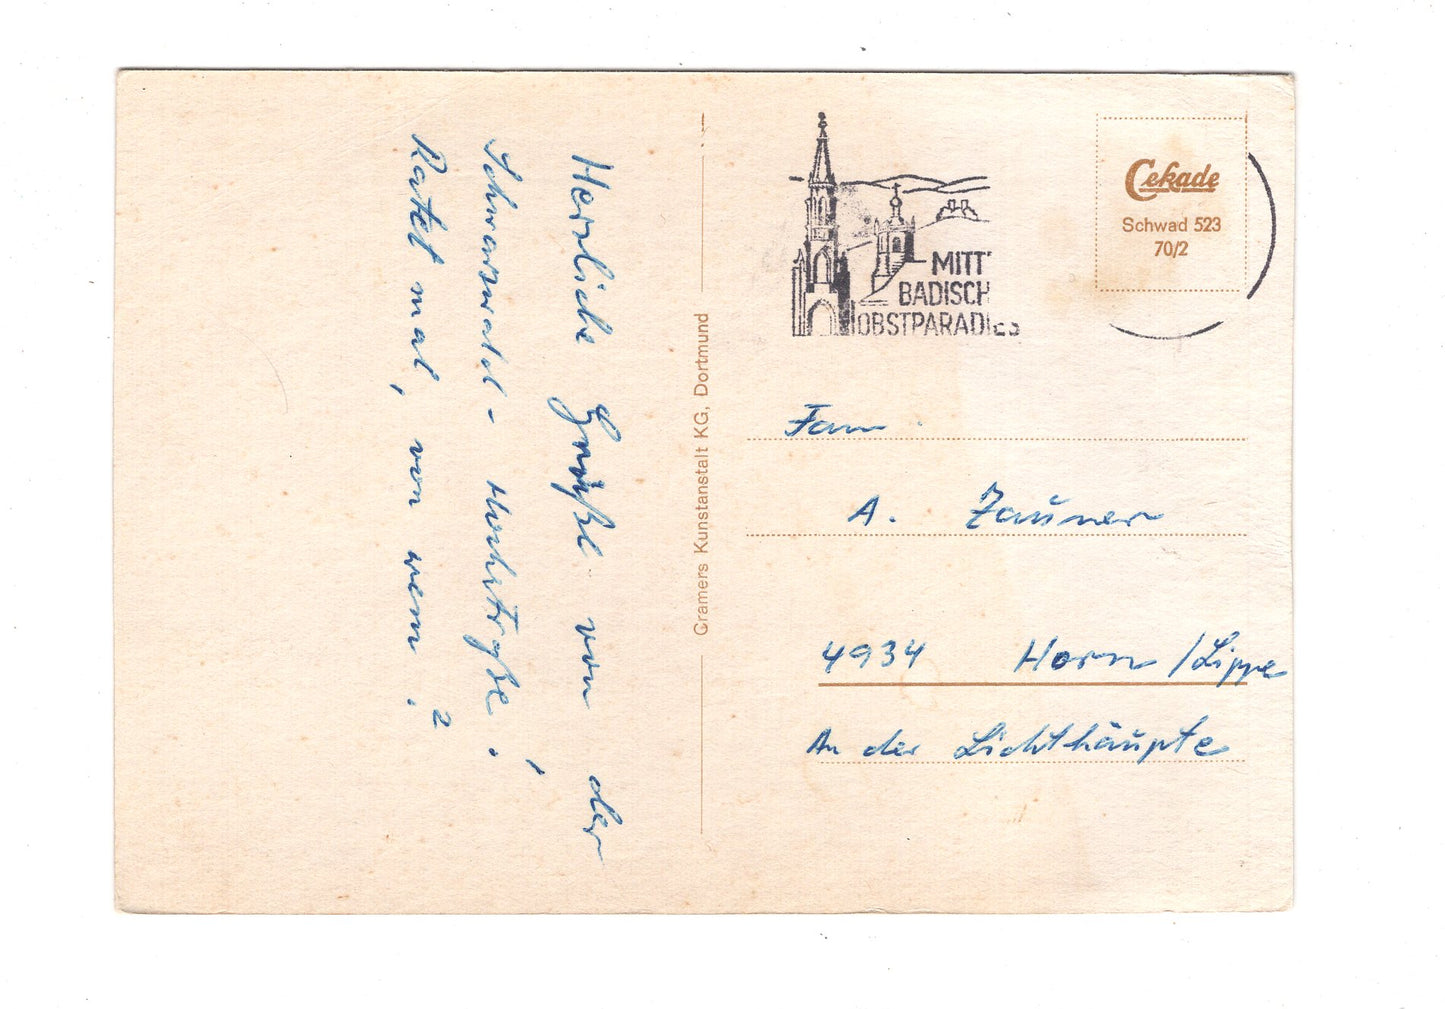 Herzliche Grüße von der
Schwarzwald - Hochstraße!
Ratet mal, von wem?
Cramers Kunstanstalt KG, Dortmund
MITT
BADISCH
OBSTPARADIES
Cekade
Schwad 523
70/2
Fam.
A. Zauner
4934 Horn / Lippe
An der Lichthäupte